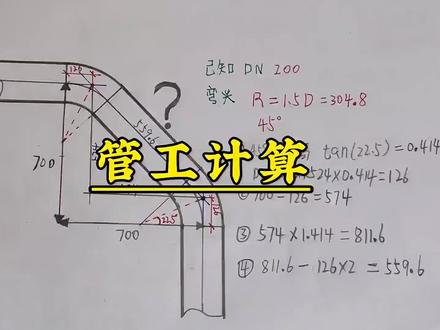 已知 DN 200
弯头 R=1.5D=304.8
45°
tan(22.5)=0.414
524×0.414=126
700-126=574
③ 574×1.414=811.6
④ 811.6-126×2=559.6
管工计算
126
559.6
?
700
700
22.5
126